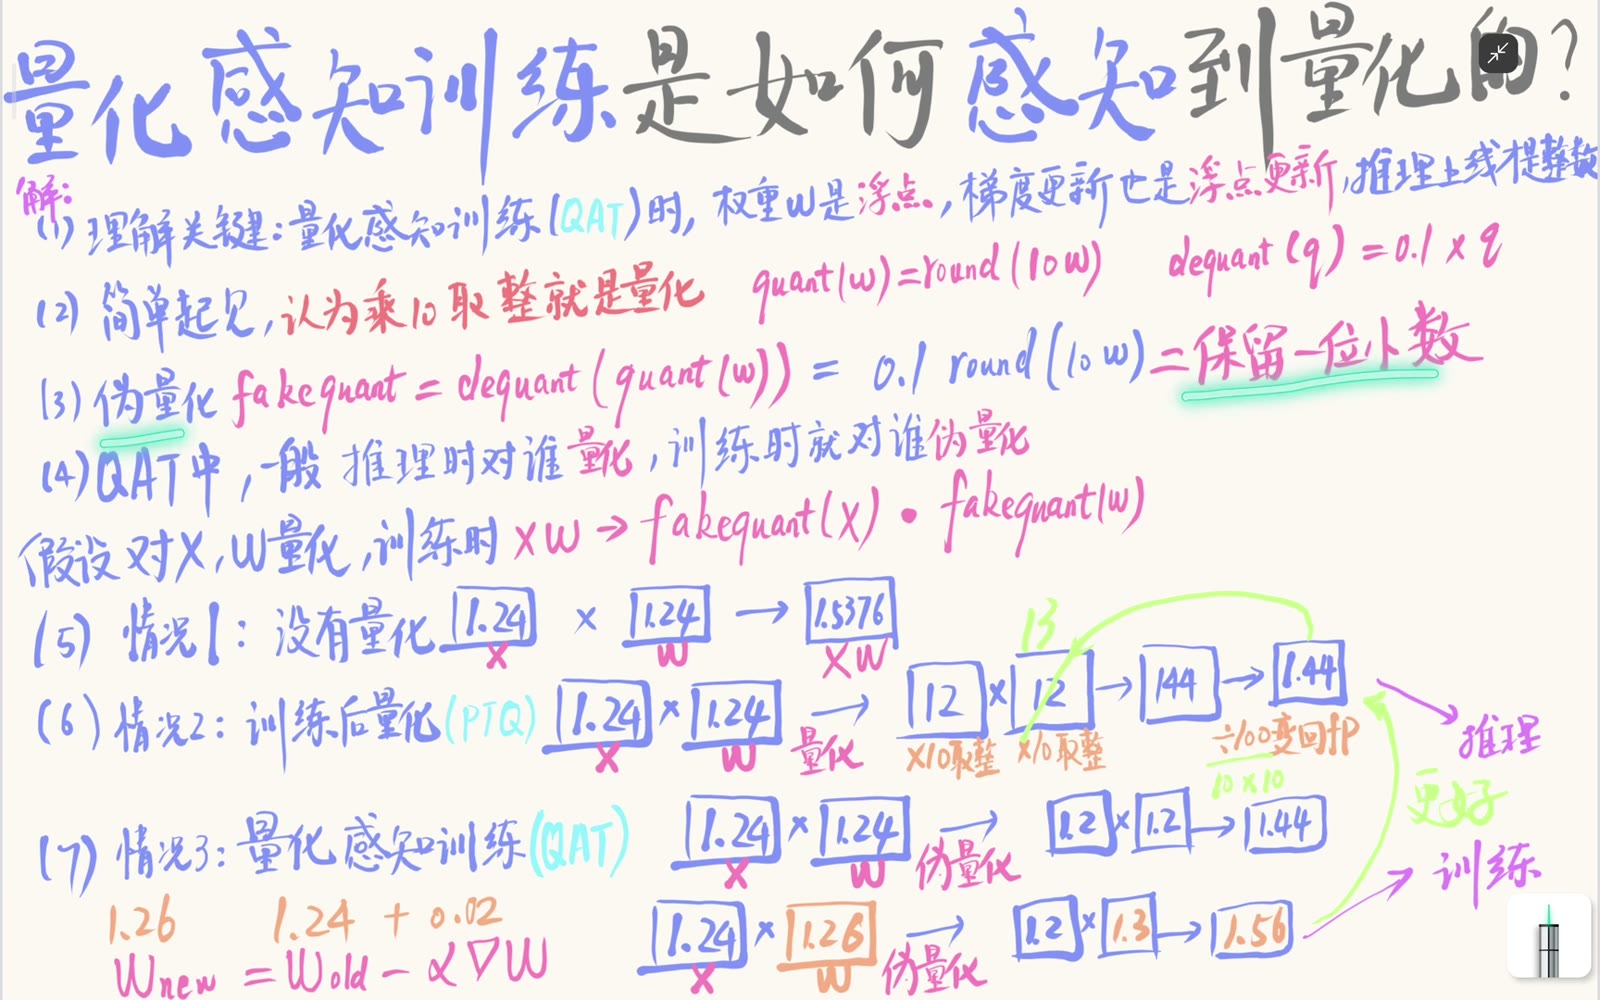 量化感知训练是如何感知到量化的?
解:
(1) 理解关键:量化感知训练(QAT)时, 权重W是浮点,梯度更新也是浮点更新,推理上线才是整数
(2) 简单起见,认为乘10取整就是量化 quant(w)=round(10w) dequant(q)=0.1×q
(3) 伪量化 fakequant = dequant(quant(w)) = 0.1 round(10w)=保留一位小数
(4) QAT中,一般推理时对谁量化,训练时就对谁伪量化
假设对X,W量化,训练时 XW → fakequant(X) • fakequant(w)
(5) 情况1: 没有量化 1.24 × 1.24 → 1.5376
X W XW
13
(6) 情况2: 训练后量化(PTQ) 1.24 × 1.24 → 12 × 12 → 144 → 1.44
X W 量化 ×10取整 ×10取整 ÷100变回fP 推理
10×10
更好
(7) 情况3: 量化感知训练(QAT) 1.24 × 1.24 → 1.2 × 1.2 → 1.44
X W 伪量化 训练
1.26 1.24 + 0.02 1.24 × 1.26 → 1.2 × 1.3 → 1.56
Wnew = Wold - α∇W X W 伪量化